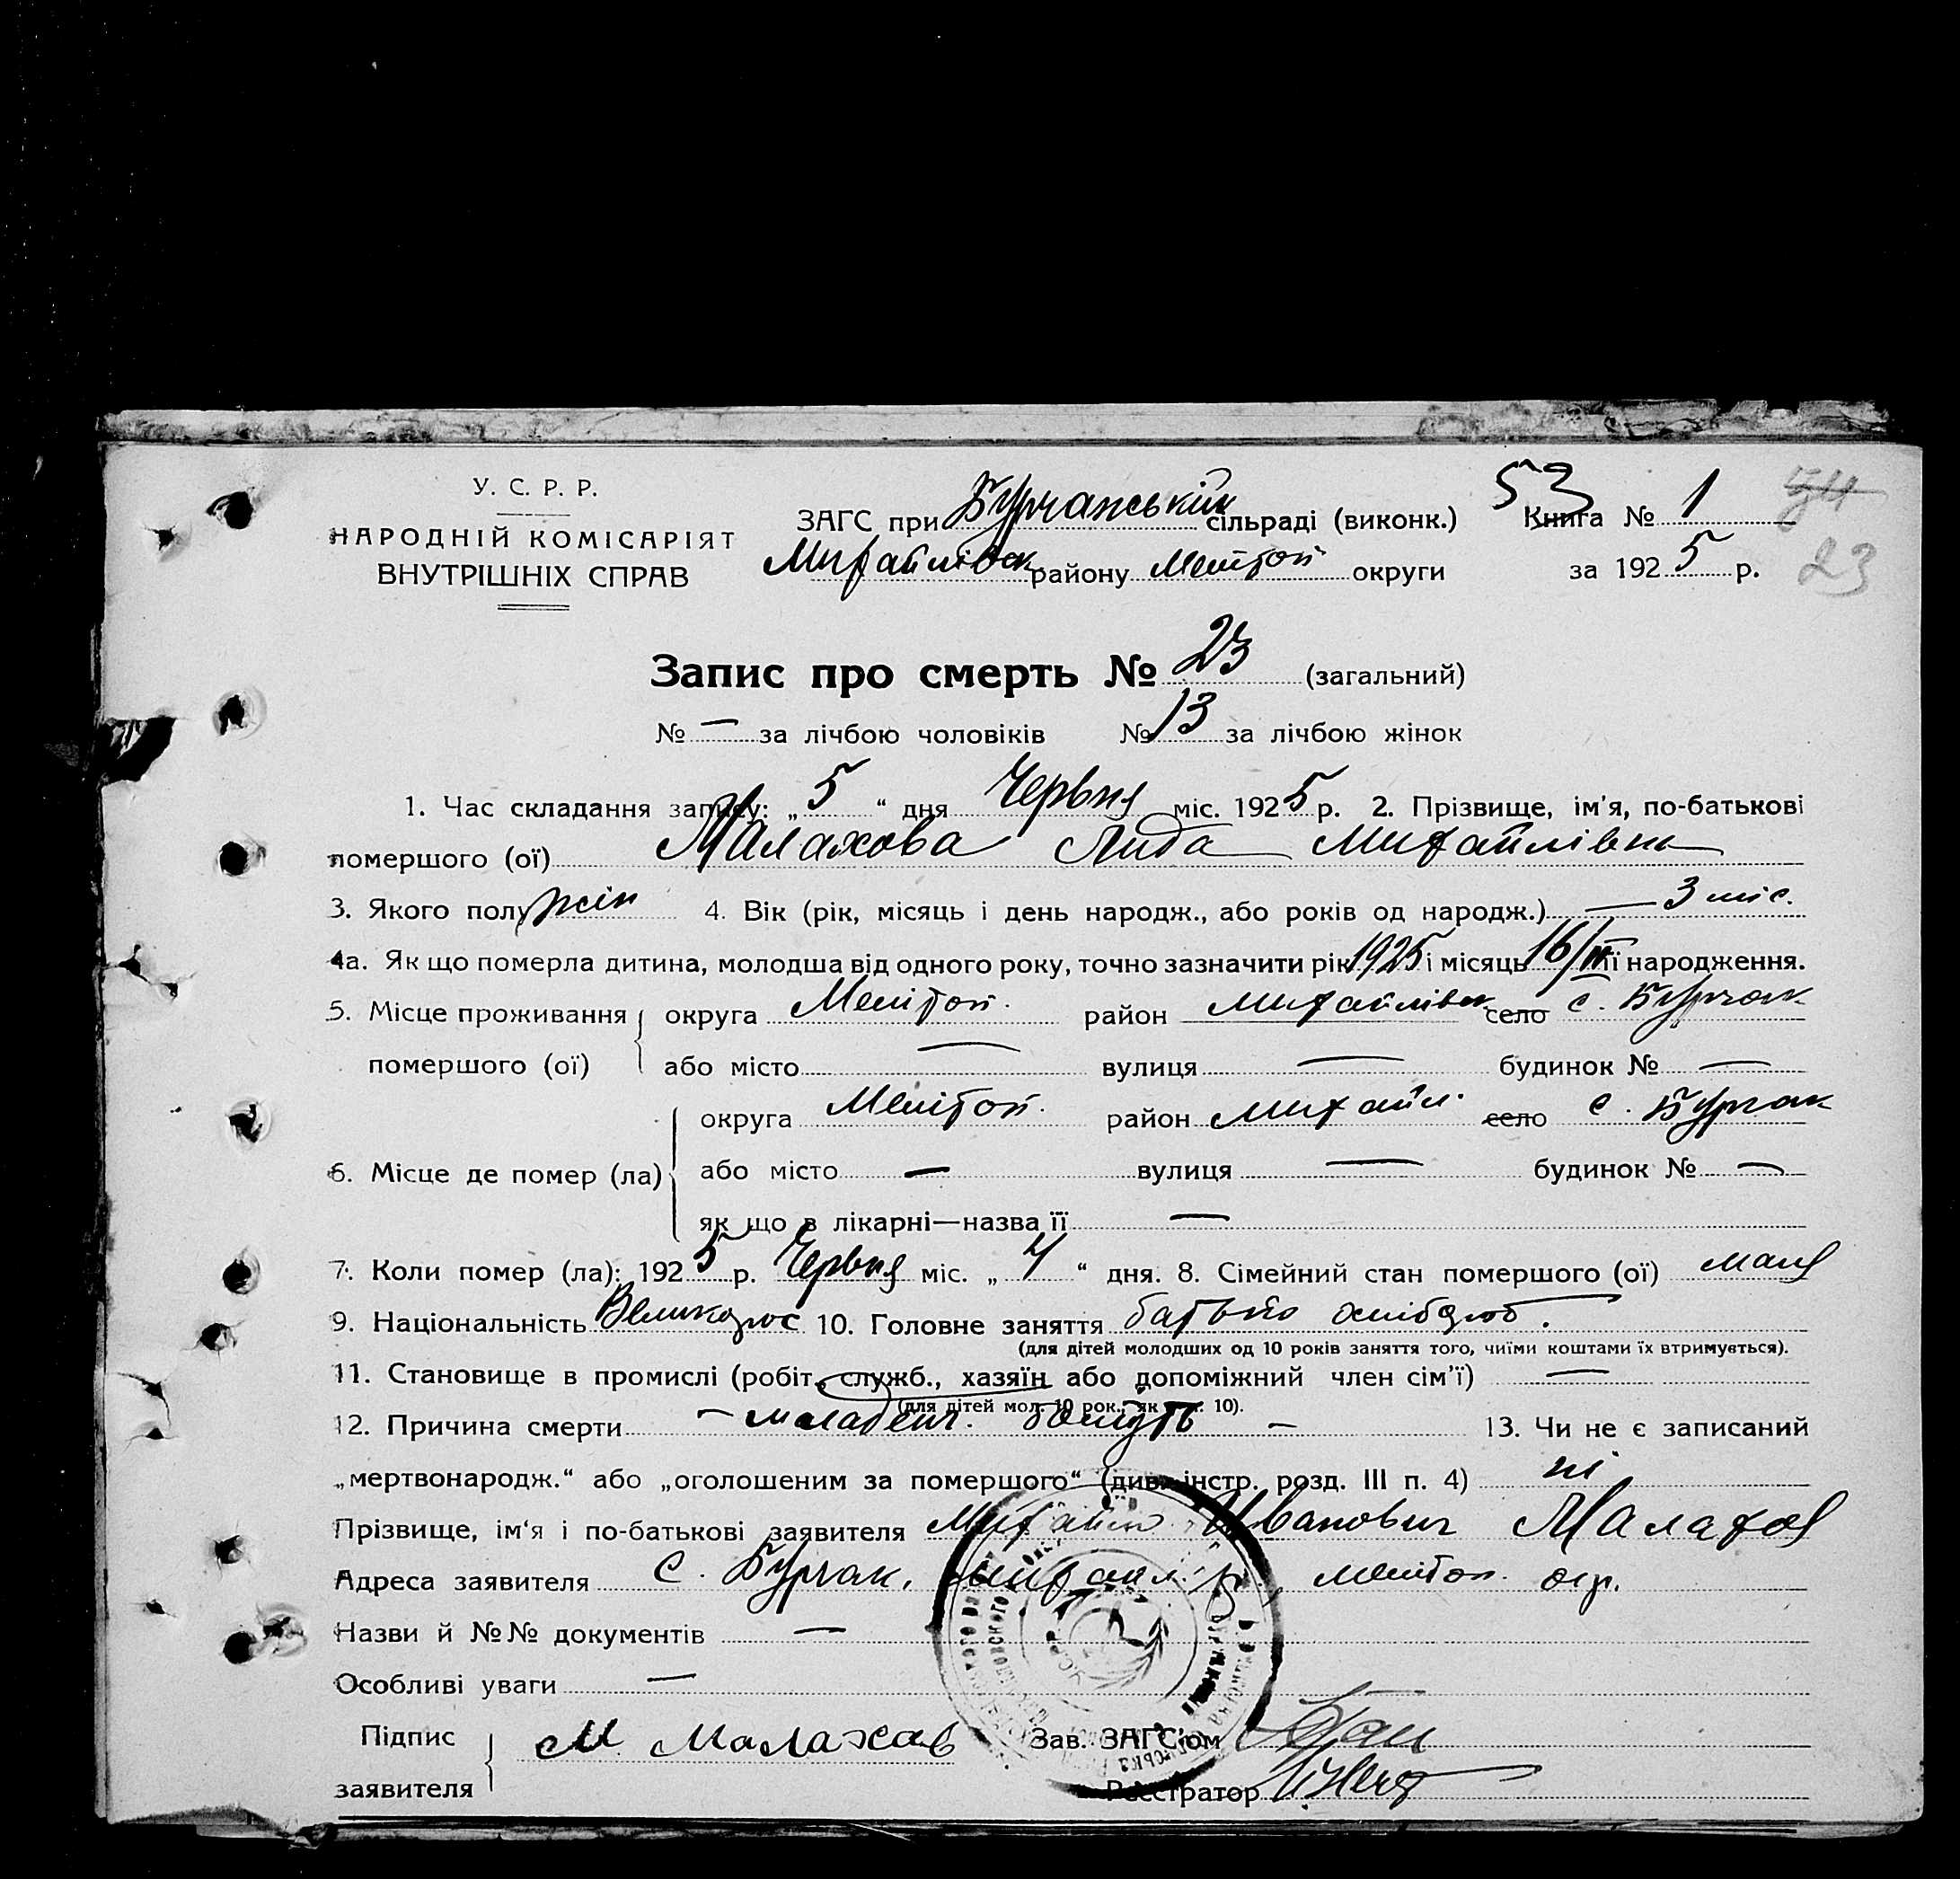 У. С. Р. Р.
НАРОДНІЙ КОМІСАРІЯТ
ВНУТРІШНІХ СПРАВ
ЗАГС при Бурчанській сільраді (виконк.) 53 Книга № 1 54
Михайлівськ району Мелітоп округи за 1925 р. 23
Запис про смерть № 23 (загальний)
№ — за лічбою чоловіків № 13 за лічбою жінок
1. Час складання запису: „5“ дня Червня міс. 1925 р. 2. Прізвище, ім'я, по-батькові
помершого (ої) Малахова Лида Михайлівна
3. Якого полу жін 4. Вік (рік, місяць і день народж., або років од народж.) — 3 міс.
4а. Як що померла дитина, молодша від одного року, точно зазначити рік 1925 і місяць 16/ її народження.
5. Місце проживання округа Мелітоп. район Михайлівськ село с. Бурчак
помершого (ої) або місто — вулиця — будинок № —
округа Мелітоп. район Михайл. село с. Бурчак
6. Місце де помер (ла) або місто — вулиця — будинок № —
як що в лікарні—назва її —
7. Коли помер (ла): 1925 р. Червня міс. „4“ дня. 8. Сімейний стан помершого (ої) маля
9. Національність Великорос 10. Головне заняття батько хлібороб.
(для дітей молодших од 10 років заняття того, чиїми коштами їх втримується).
11. Становище в промислі (робіт., служб., хазяїн або допоміжний член сім'ї) —
(для дітей мол. 10 рок., як п. 10).
12. Причина смерти — младенч. — 13. Чи не є записаний
„мертвонародж.“ або „оголошеним за помершого“ (див. інстр. розд. III п. 4) ні
Прізвище, ім'я і по-батькові заявителя Михайло Иванович Малахов
Адреса заявителя с. Бурчак, Михайл. р., Мелітоп. окр.
Назви й №№ документів —
Особливі уваги —
Підпис заявителя М Малахов Зав. ЗАГС'ом
Реєстратор